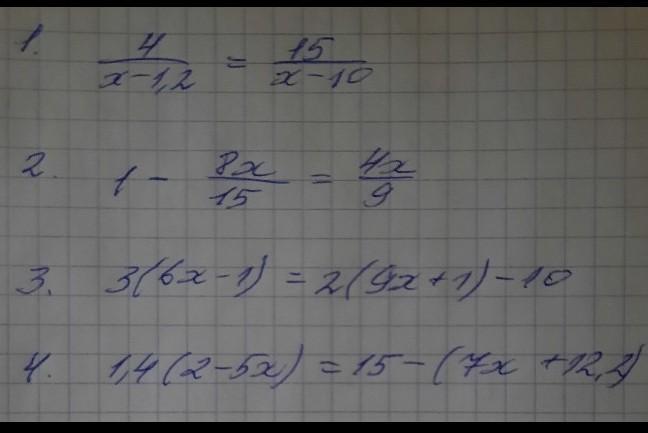 1. 4/(x-1,2) = 15/(x-10)
2. 1 - 8x/15 = 4x/9
3. 3(6x-1) = 2(9x+1)-10
4. 1,4(2-5x) = 15-(7x+12,2)